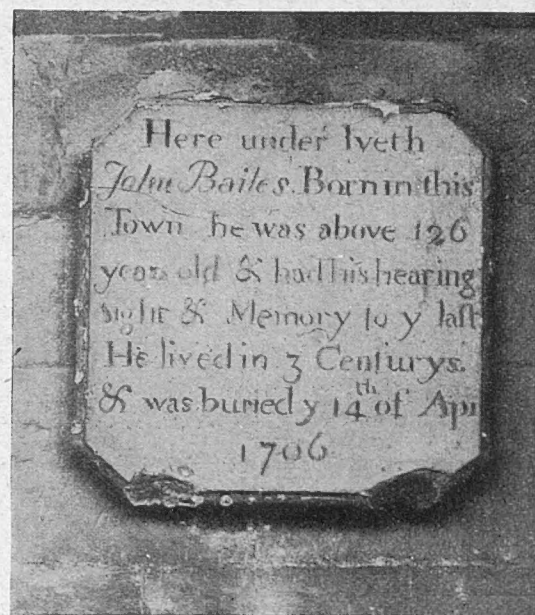 Here under lyeth
John Bailes. Born in this
Town he was above 126
years old & had his hearing
sight & Memory to y last
He lived in 3 Centurys.
& was buried y 14th of Apr
1706